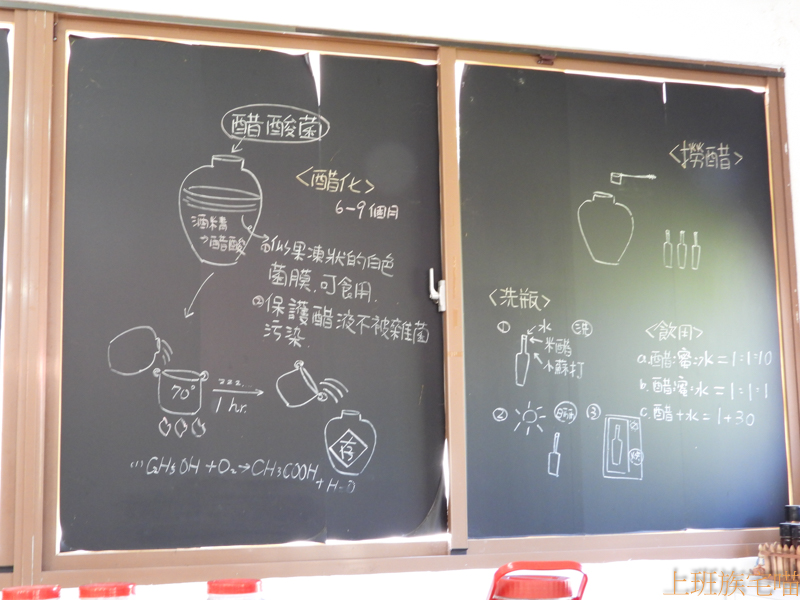 醋酸菌
<醋化>
6-9個月
酒精
醋酸
①似果凍狀的白色
菌膜.可食用.
②保護醋液不被雜菌
污染.
70°
zzz...
1 hr.
存
C2H5OH + O2 → CH3COOH
+ H2O
<撈醋>
<洗瓶>
① 水 洗
米醋
小蘇打
② 晒 ③
烘
<飲用>
a.醋:蜜:水=1:1:10
b.醋:蜜:水=1:1:1
c.醋+水=1+30
上班族宅喵